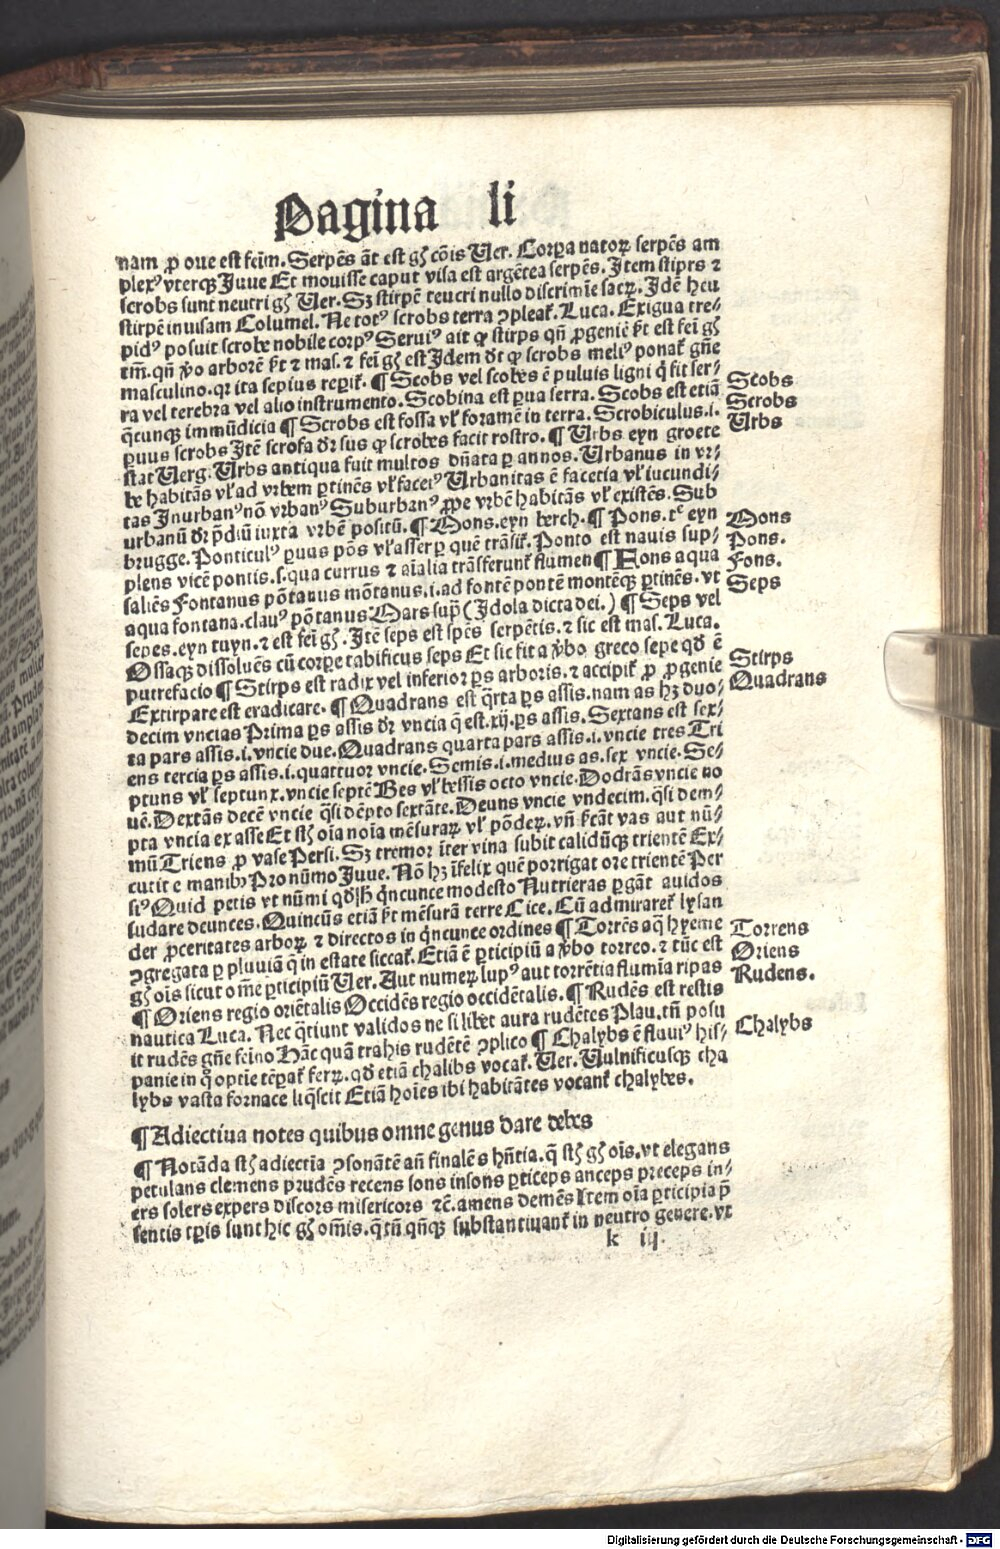 Pagina li
nam ꝓ oue est fēm. Serpēs āt est gn̄s cōis Ver. Corꝑa natoꝝ serpēs am
plexꝰ vterqꝫ Juue Et mouisse caput visa est argētea serpēs. Jtem stiprs ⁊
scrobs sunt neutri gn̄s Ver. Sꝫ stirpē teucri nullo discrimīe sacꝝ. Jdē heu
stirpē inuisam Columel. Ne totꝰ scrobs terra ꝯpleat̄. Luca. Exigua tre⸗
pidꝰ posuit scrobe nobile corpꝰ Seruiꝰ ait ꝙ stirps qn̄ ꝓgeniē
masculino. qr ita sepius reperit̄. ¶ Scobs vel scobes ē puluis ligni q̄ fit ser⸗
ra vel terebra vel alio instrumento. Scobina est ꝑua serra. Scobs est etiā
q̄cunqꝫ immūdicia ¶ Scrobs est fossa vl̄ foramē in terra. Scrobiculus .i.
ꝑuus scrobs Jtē scrofa dr̄ sus ꝙ scrobes facit rostro. ¶ Vrbs eyn groete
stat Verg. Vrbs antiqua fuit multos dn̄ata ꝑ annos. Vrbanus in vr⸗
be habitās vl̄ ad vrbem ꝑtinēs vl̄ facetꝰ Vrbanitas ē facetia vl̄ iucundi⸗
tas Jnurbanꝰ nō vrbanꝰ Suburbanꝰ ꝓpe vrbē habitās vl̄ existēs. Sub
urbanū dr̄ p̄diū iuxta vrbē positū. ¶ Mons. eyn berch. ¶ Pons. tis eyn
brugge. Ponticulꝰ ꝑuus pōs vl̄ asser ꝑ quē trāsit̄. Ponto est nauis sup⸗
plens vicē pontis. s. qua currus ⁊ aīalia trāsferunt̄ flumen ¶ Fons aqua
saliēs Fontanus pōtanus mōtanus .i. ad fontē pontē montēqꝫ ꝑtinēs. vt
aqua fontana. clauꝰ pōtanus Mars sup̄ (Jdola dicta dei.) ¶ Seps vel
sepes. eyn tuyn. ⁊ est fei gn̄s. Jtē seps est spēs serpētis. ⁊ sic est mas. Luca.
Ossaqꝫ dissoluēs cū corꝑe tabificus seps Et sic fit a ꝟbo greco sepe qd̄ ē
putrefacio ¶ Stirps est radix vel inferior ꝑs arboris. ⁊ accipit̄ ꝓ ꝓgenie
Extirpare est eradicare. ¶ Quadrans est q̄rta ꝑs assis. nam as hꝫ duo⸗
decim vncias Prima ꝑs assis dr̄ vncia q̄ est .xij. ꝑs assis. Sextans est sex⸗
ta pars assis .i. vncie due. Quadrans quarta pars assis .i. vncie tres Tri
ens tercia ꝑs assis .i. quattuor vncie. Semis .i. medius as. sex vncie. Se⸗
ptuns vl̄ septunx. vncie septē Bes vl̄ bessis octo vncie. Dodrās vncie no
uē. Dextās decē vncie q̄si dēpto sextāte. Deuns vncie vndecim. q̄si dem⸗
pta vncia ex asse Et sūt oīa noīa mēsuraꝝ vl̄ pōdeꝝ. vn̄ fi̇cāt vas aut nū⸗
mū Triens ꝓ vase Persi. Sꝫ tremor īter vina subit calidūqꝫ trientē Ex⸗
cutit e manibꝫ Pro nūmo Juue. Nō hꝫ īfelix quē porrigat ore trientē Per
siꝰ Quid petis vt nūmi qd̄ hic q̄ncunce modesto Nutrieras ꝑgāt auidos
sudare deunces. Quincūs etiā mēsurā terre Cice. Cū admiraret̄ lysan
der ꝓceritates arboꝝ ⁊ directos in q̄ncunce ordines ¶ Torrēs aq̄ hyeme
ꝯgregata ꝑ pluuiā q̄ in estate siccat̄. Etiā ē ꝑticipiū a ꝟbo torreo. ⁊ tūc est
gn̄s oīs sicut om̄e ꝑticipiū Ver. Aut numeꝝ lupꝰ aut torrētia flumīa ripas
¶ Oriens regio oriētalis Occidēs regio occidētalis. ¶ Rudēs est restis
nautica Luca. Nec q̄tiunt validos ne si libet aura rudētes Plau. tn̄ posu
it rudēs gn̄e feīno Hāc quā trahis rudētē ꝯplico ¶ Chalybs ē fluuiꝰ his⸗
panie in q̄ optīe tēꝑat̄ ferꝝ. qd̄ etiā chalibs vocat̄. Ver. Vulnificusqꝫ cha
lybs vasta fornace liq̄scit Etiā hoīes ibi habitātes vocant̄ chalybes.
¶ Adiectiua notes quibus omne genus dare debes
¶ Notāda sūt adiectīa ꝯsonātē an̄ finalē s hn̄tia. q̄ sūt gn̄s oīs. vt elegans
petulans clemens prudēs recens sons insons ꝑticeps anceps preceps in⸗
ers solers expers discors misericors ⁊c̄. amens demēs Jtem oīa ꝑticipia p̄
sentis tꝑis sunt hic gn̄s om̄is. q̄ tn̄ qn̄qꝫ substantiuant̄ in neutro genere. vt
k iij.
Scobs
Scrobs
Vrbs
Mons
Pons.
Fons.
Seps
Stirps
Quadrans
Torrens
Oriens
Rudens.
Chalybs
Digitalisierung gefördert durch die Deutsche Forschungsgemeinschaft - DFG